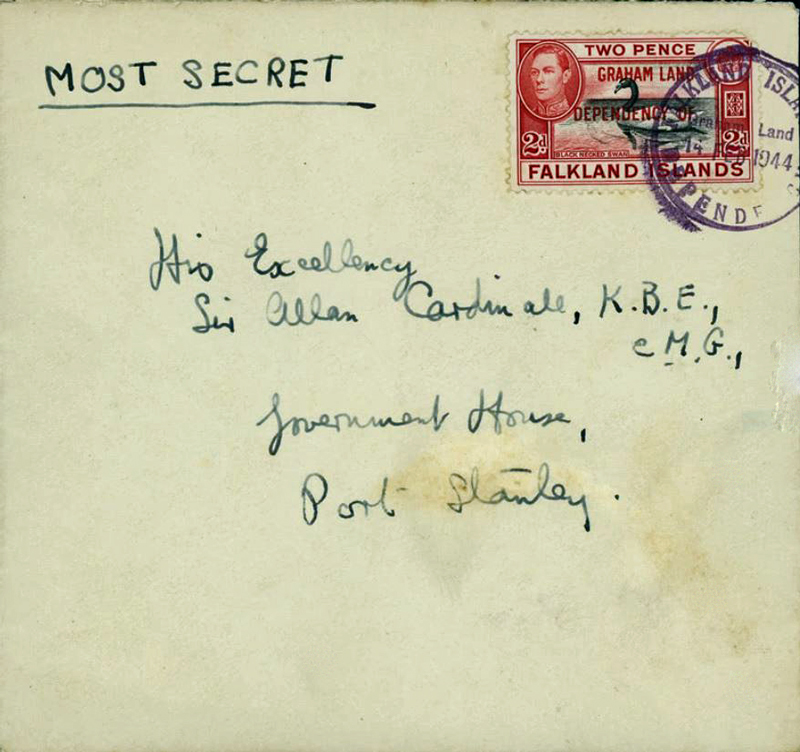 MOST SECRET
TWO PENCE
GRAHAM LAND
DEPENDENCY OF
2d 2d
BLACK NECKED SWAN
FALKLAND ISLANDS
FALKLAND ISLA
Graham Land
14 FEB 1944
DEPENDE
His Excellency
Sir Allan Cardinall, K.B.E.,
C.M.G.,
Government House,
Port Stanley.